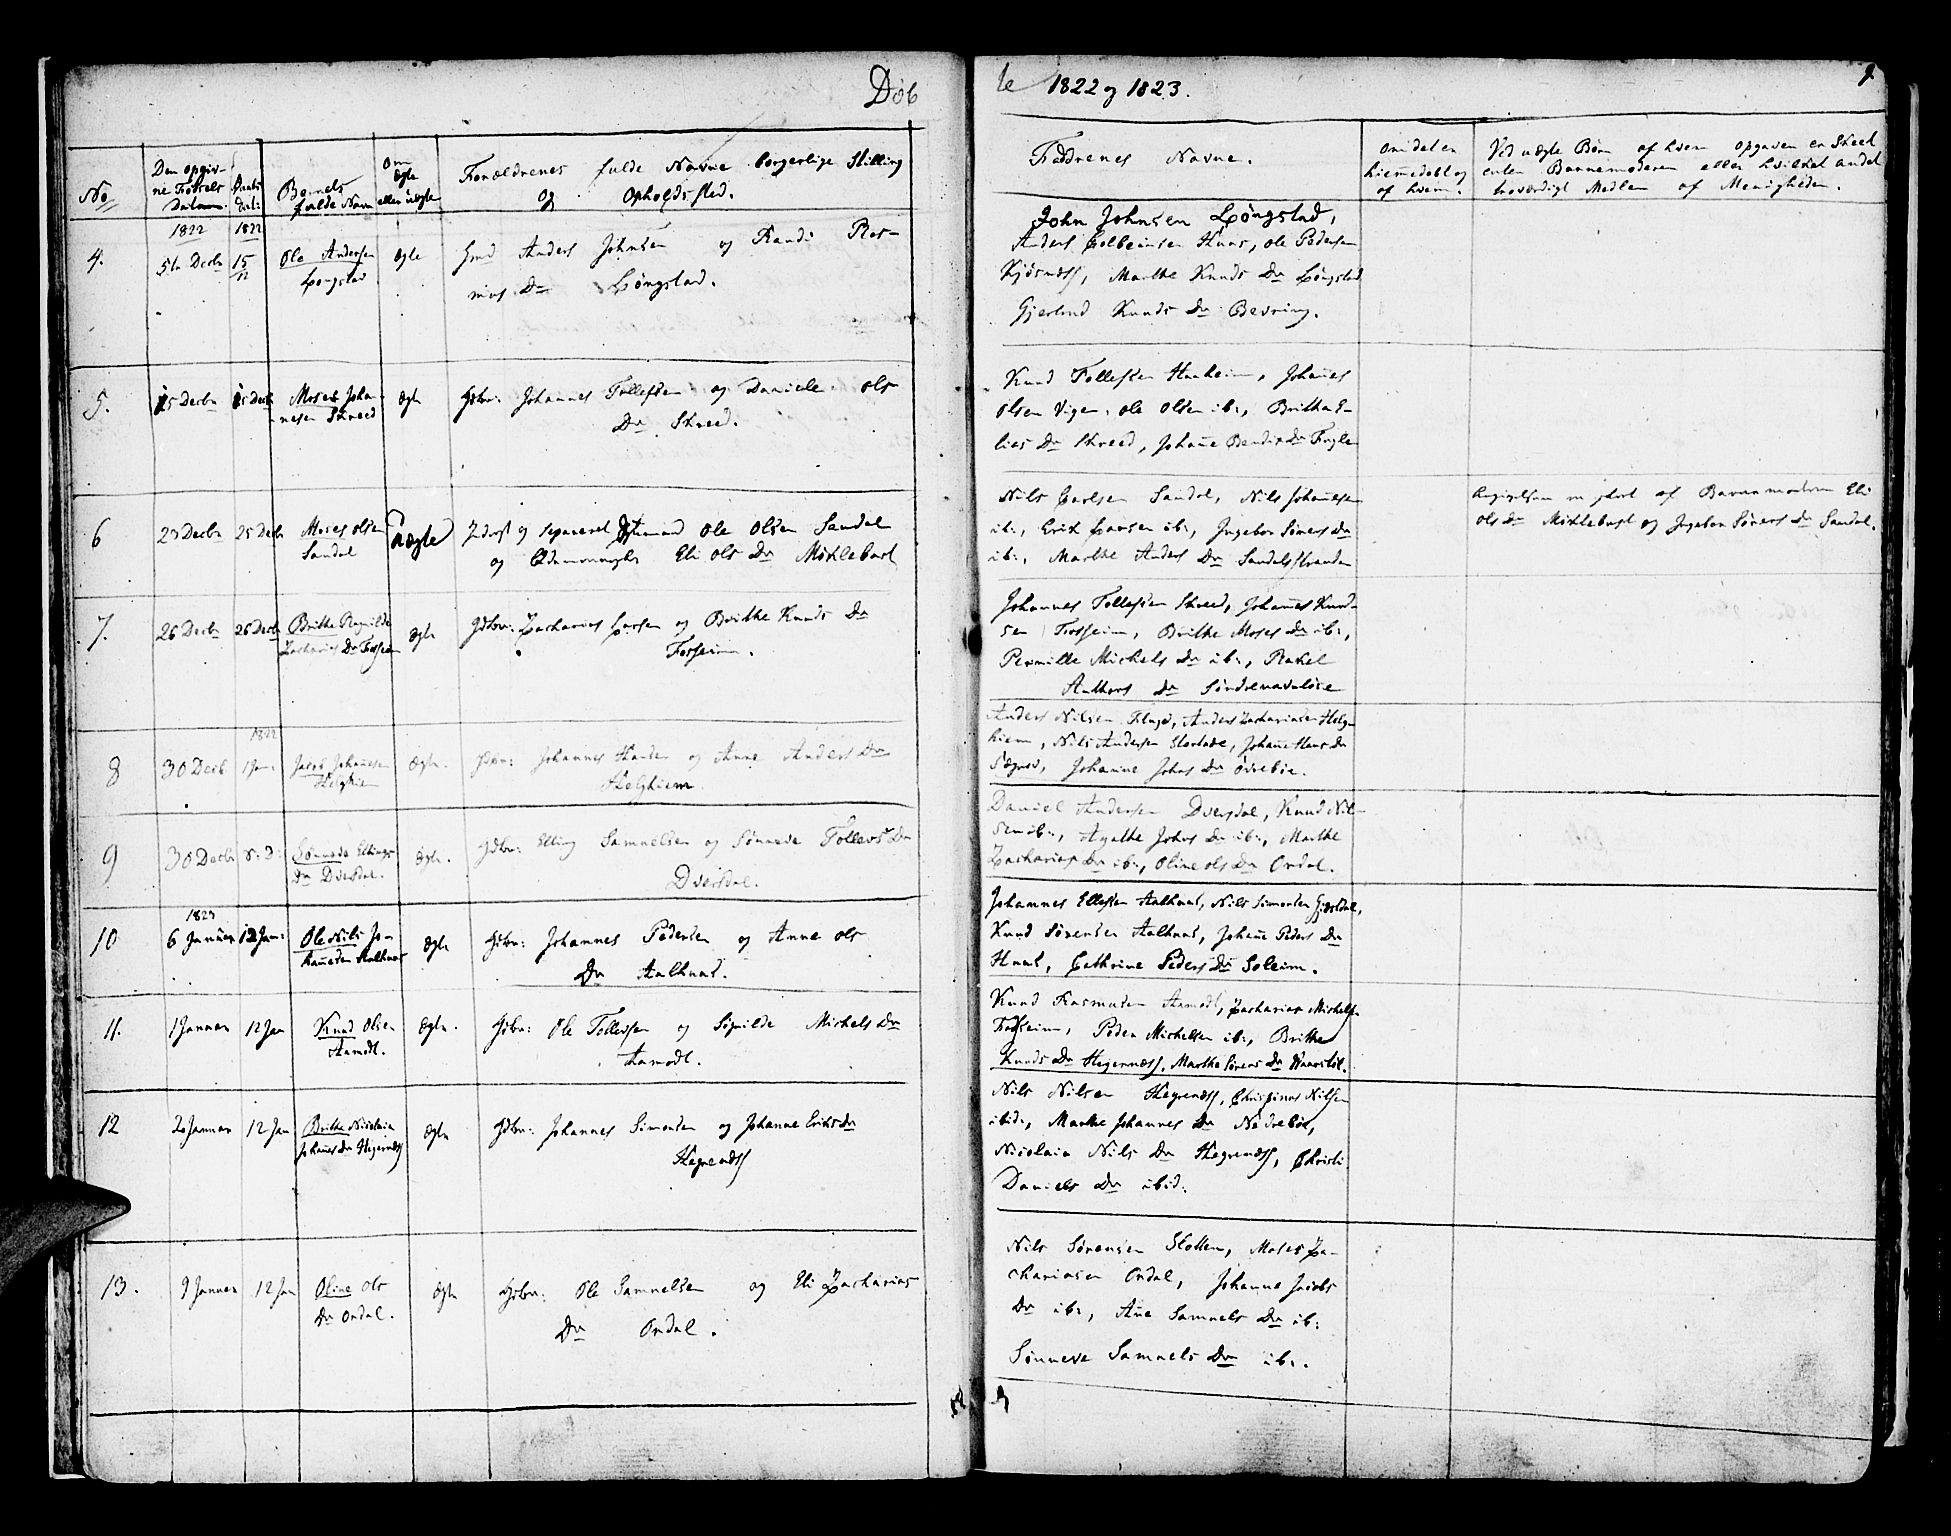 Døb
te 1822 og 1823.
9
No
Den opgiv-
ne Fødsels
Datum.
Daabs
Dat:
Barnets
fulde Navn
Om
ægte
eller uægte
Forældrenes fulde Navne borgerlige Stilling
og Opholdssted.
Faddrenes Navne.
om det er
hiemedøbt og
af hvem.
Ved uægte Børn af hvem opgaven er skeet
enten Barnemoderen eller hvilket andet
troværdigt Medlem af Menigheden.
4.
1822
5te Decbr
1822
15/12
Ole Andersen
Longstad
ægte
Gmd Anders Johnsen og Randi Ras-
mus Dr Löngstad.
John Johnsen Löngstad,
Anders Colbeinsen Huus, Ole Pedersen
Kjösnæss, Marthe Knuds Dr Löngstad
Gjertrud Knuds Dr Bevring.
5.
15 Decbr
15 Decb
Moses Joha-
nesen Skreed
ægte
Gdbr: Johannes Tollefsen og Daniele Ols
Dr Skreed.
Knud Tollefsen Haaheim, Johanes
Olsen Vigen, Ole Olsen ib:, Brithe E-
lias Dr Skreed, Johane Bendix Dr Fugle
6
23 Decbr
25 Decb
Moses Olsen
Sandal
uægte
Inderst og separeret Ole Olsen Sandal
og Eli Ols Dr Mÿklebust
Nils Carlsen Sandal, Nils Johanesen
ib:, Erik Larsen ib:, Ingebor Sörens Dr
ib:, Marthe Anders Dr Sandalsstranden
Angivelsen er gjort af Barnemoderen Eli
Ols Dr Mÿklebust og Ingebor Sörens Dr Sandal.
7.
26 Decbr
26 Decb
Brithe Regnilde
Zacharias Dr Forseim
ægte
Gdbr: Zacharias Larsen og Brithe Knuds Dr
Forseim.
Johannes Tollefsen Skreed, Johanes Knud-
sen Forseim, Brithe Moses Dr ib:,
Pernille Michels Dr ib:, Rakel
Anthons Dr Söndrenavalöse
8
30 Decb
1822
1 Jan:
Jacob Johanesen
Helghiem
ægte.
Gdbr: Johannes Hansen og Anne Anders Dr
Helghiem
Anders Nilsen Flugo, Anders Zachariasen Helg-
hiem, Nils Andersen, Johane Hans Dr
Sægrov, Johanne Johns Dr Övreböe.
9
30 Decbr
d: D:
Sönneve Ellings
Dr Dversdal.
ægte.
Gdbr: Elling Samuelsen og Sönneve Tollevs Dr
Dversdal.
Daniel Andersen Dversdal, Knud Nil-
sen ib:, Agathe Johns Dr ib:, Marthe
Zacharias Dr ib:, Oline Ols Dr Ordal.
10
1823
6 Januar
12 Jan:
Ole Nils Jo-
hanesen Aalhuus
ægte
Gdbr: Johannes Pedersen og Anne Ols
Dr Aalhuus.
Johannes Ellefsen Aalhuus, Nils Simonsen Gjesdal,
Knud Sörensen Aalhuus, Johane Peders Dr
Huus, Cathrine Peders Dr Soleim.
11.
1 Januar
12 Jan
Knud Olsen
Aamodt.
ægte.
Gdbr: Ole Tollevsen og Signilde Michels Dr
Aamodt.
Knud Rasmusen Aamodt, Zacharias Michelsen
Forseim, Peder Michelsen ib:, Brithe
Knuds Dr Hegernæss, Marthe Sörens Dr
12
2 Januar
12 Jan
Brithe Nicolaia
Johanes Dr Hegernæss
ægte
Gdbr: Johannes Simonsen og Johanne Eriks Dr
Hegrenæss
Nils Nilsen Hegrenæss, Christinus Nilsen
ibid:, Marthe Johannes Dr Nedreböe,
Nicolaia Nils Dr Hegrenæss, Christi
Daniels Dr ibid:
13.
9 Januar
12 Jan
Oline Ols
Dr Ordal.
ægte
Gdbr: Ole Samuelsen og Eli Zacharias
Dr Ordal.
Nils Sörensen Slotten, Moses Za-
chariasen Ordal, Johanne Jacobs
Dr ib:, Ane Samuels Dr ib:
Sönneve Samuels Dr ib:.